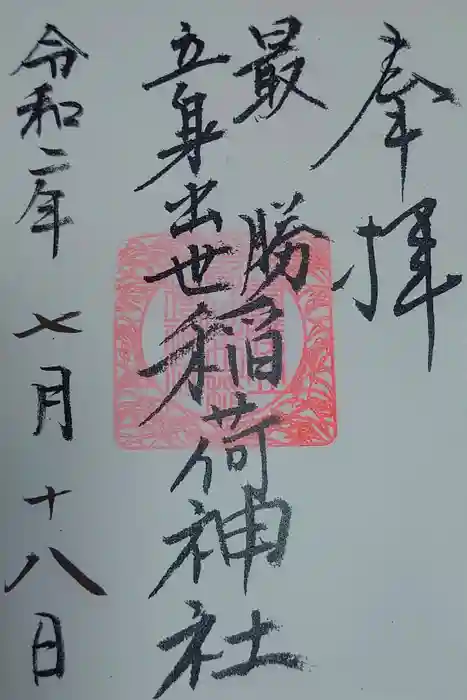 奉拝
最勝
立身出世
稲荷神社
令和二年七月十八日